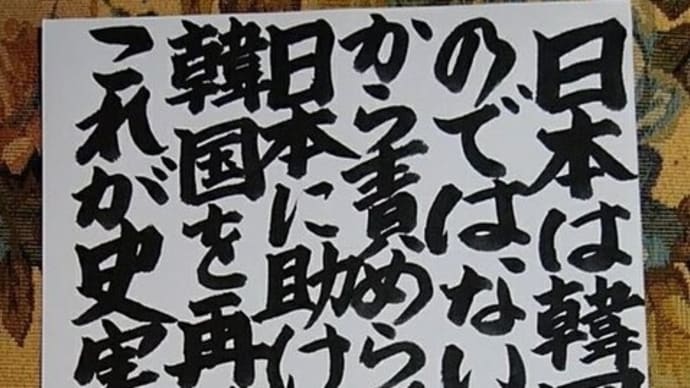 日本は韓
のではない
から責めら
日本に助け
韓国を再
これが史実